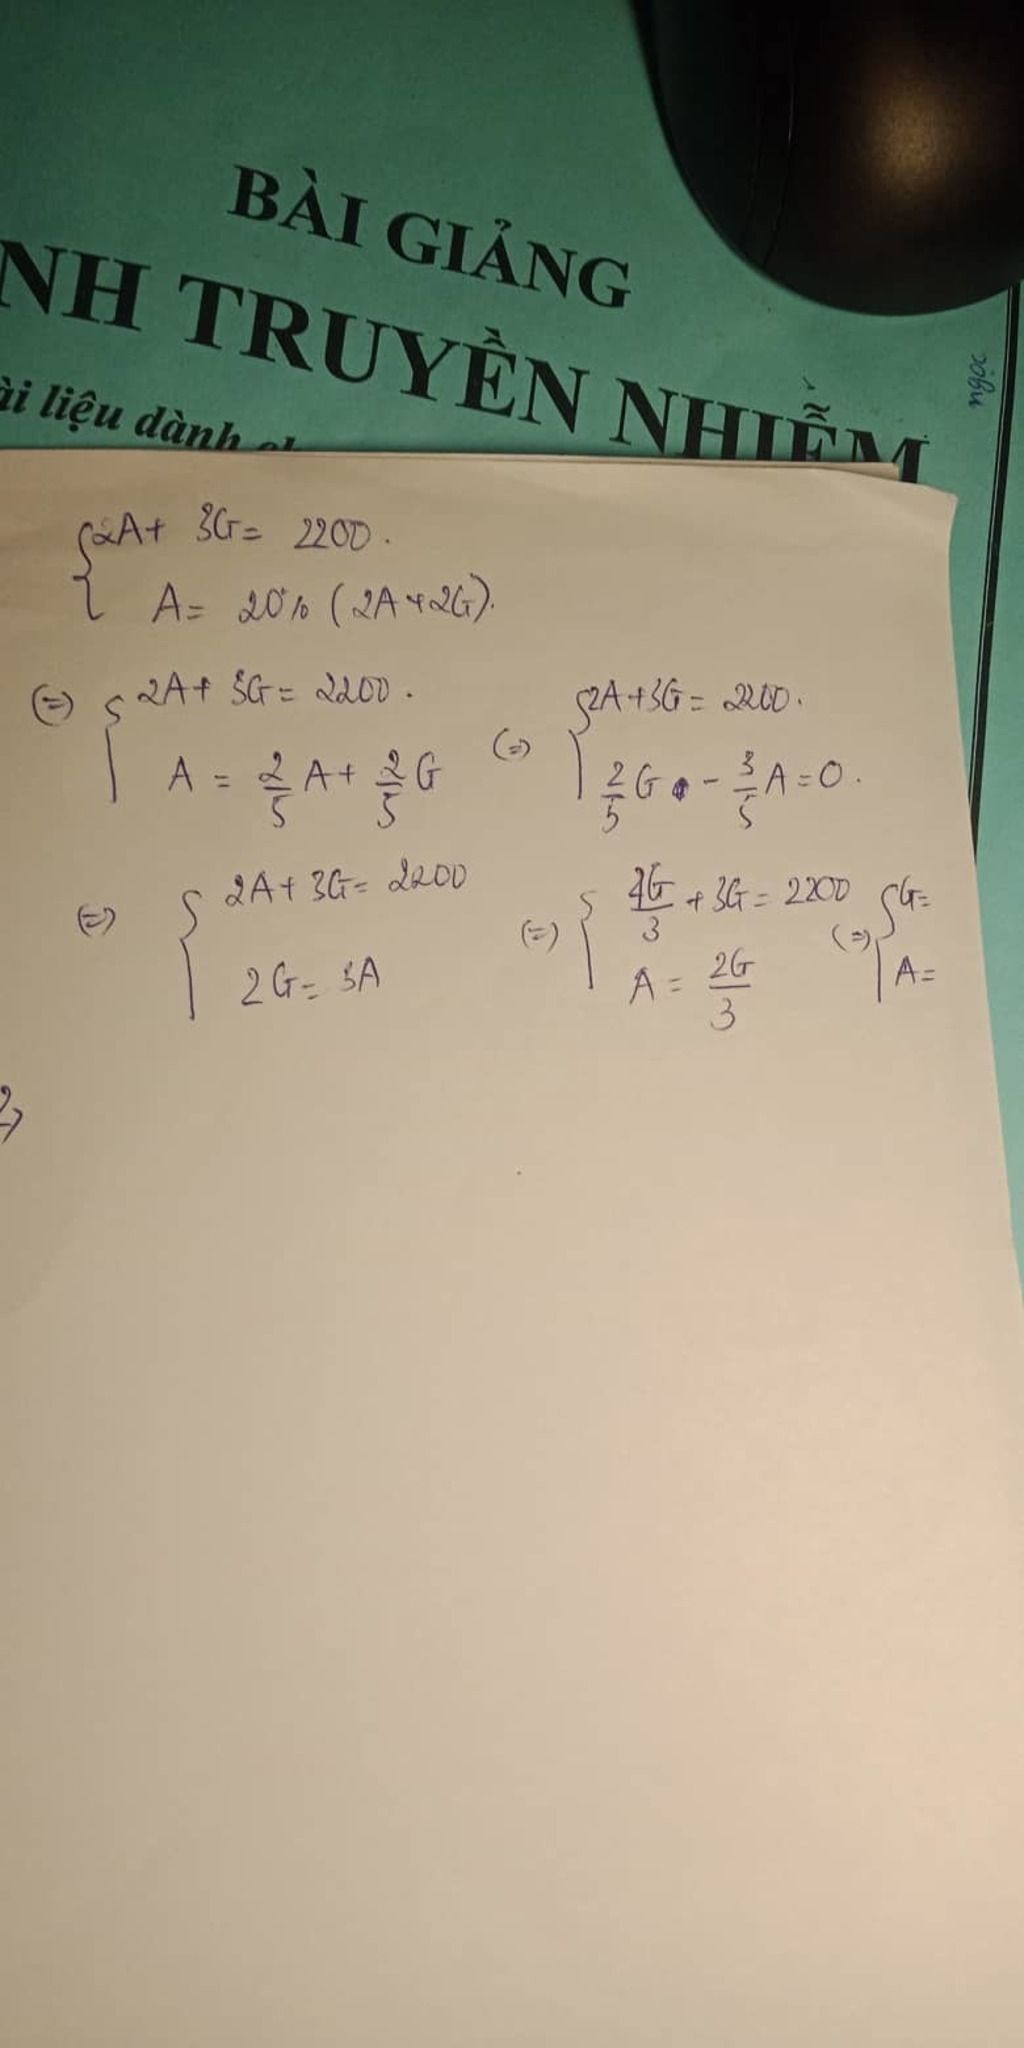 BÀI GIẢNG
NH TRUYỀN NHIỄM
ài liệu dành
ngọc
2A + 3G = 2200.
A = 20% (2A + 2G).
(=) 2A + 3G = 2200.
A = 2/5 A + 2/5 G
(=) 2A + 3G = 2200.
2/5 G - 3/5 A = 0.
(=) 2A + 3G = 2200
2G = 3A
(=) 4G/3 + 3G = 2200
A = 2G/3
(=) G =
A =
2,